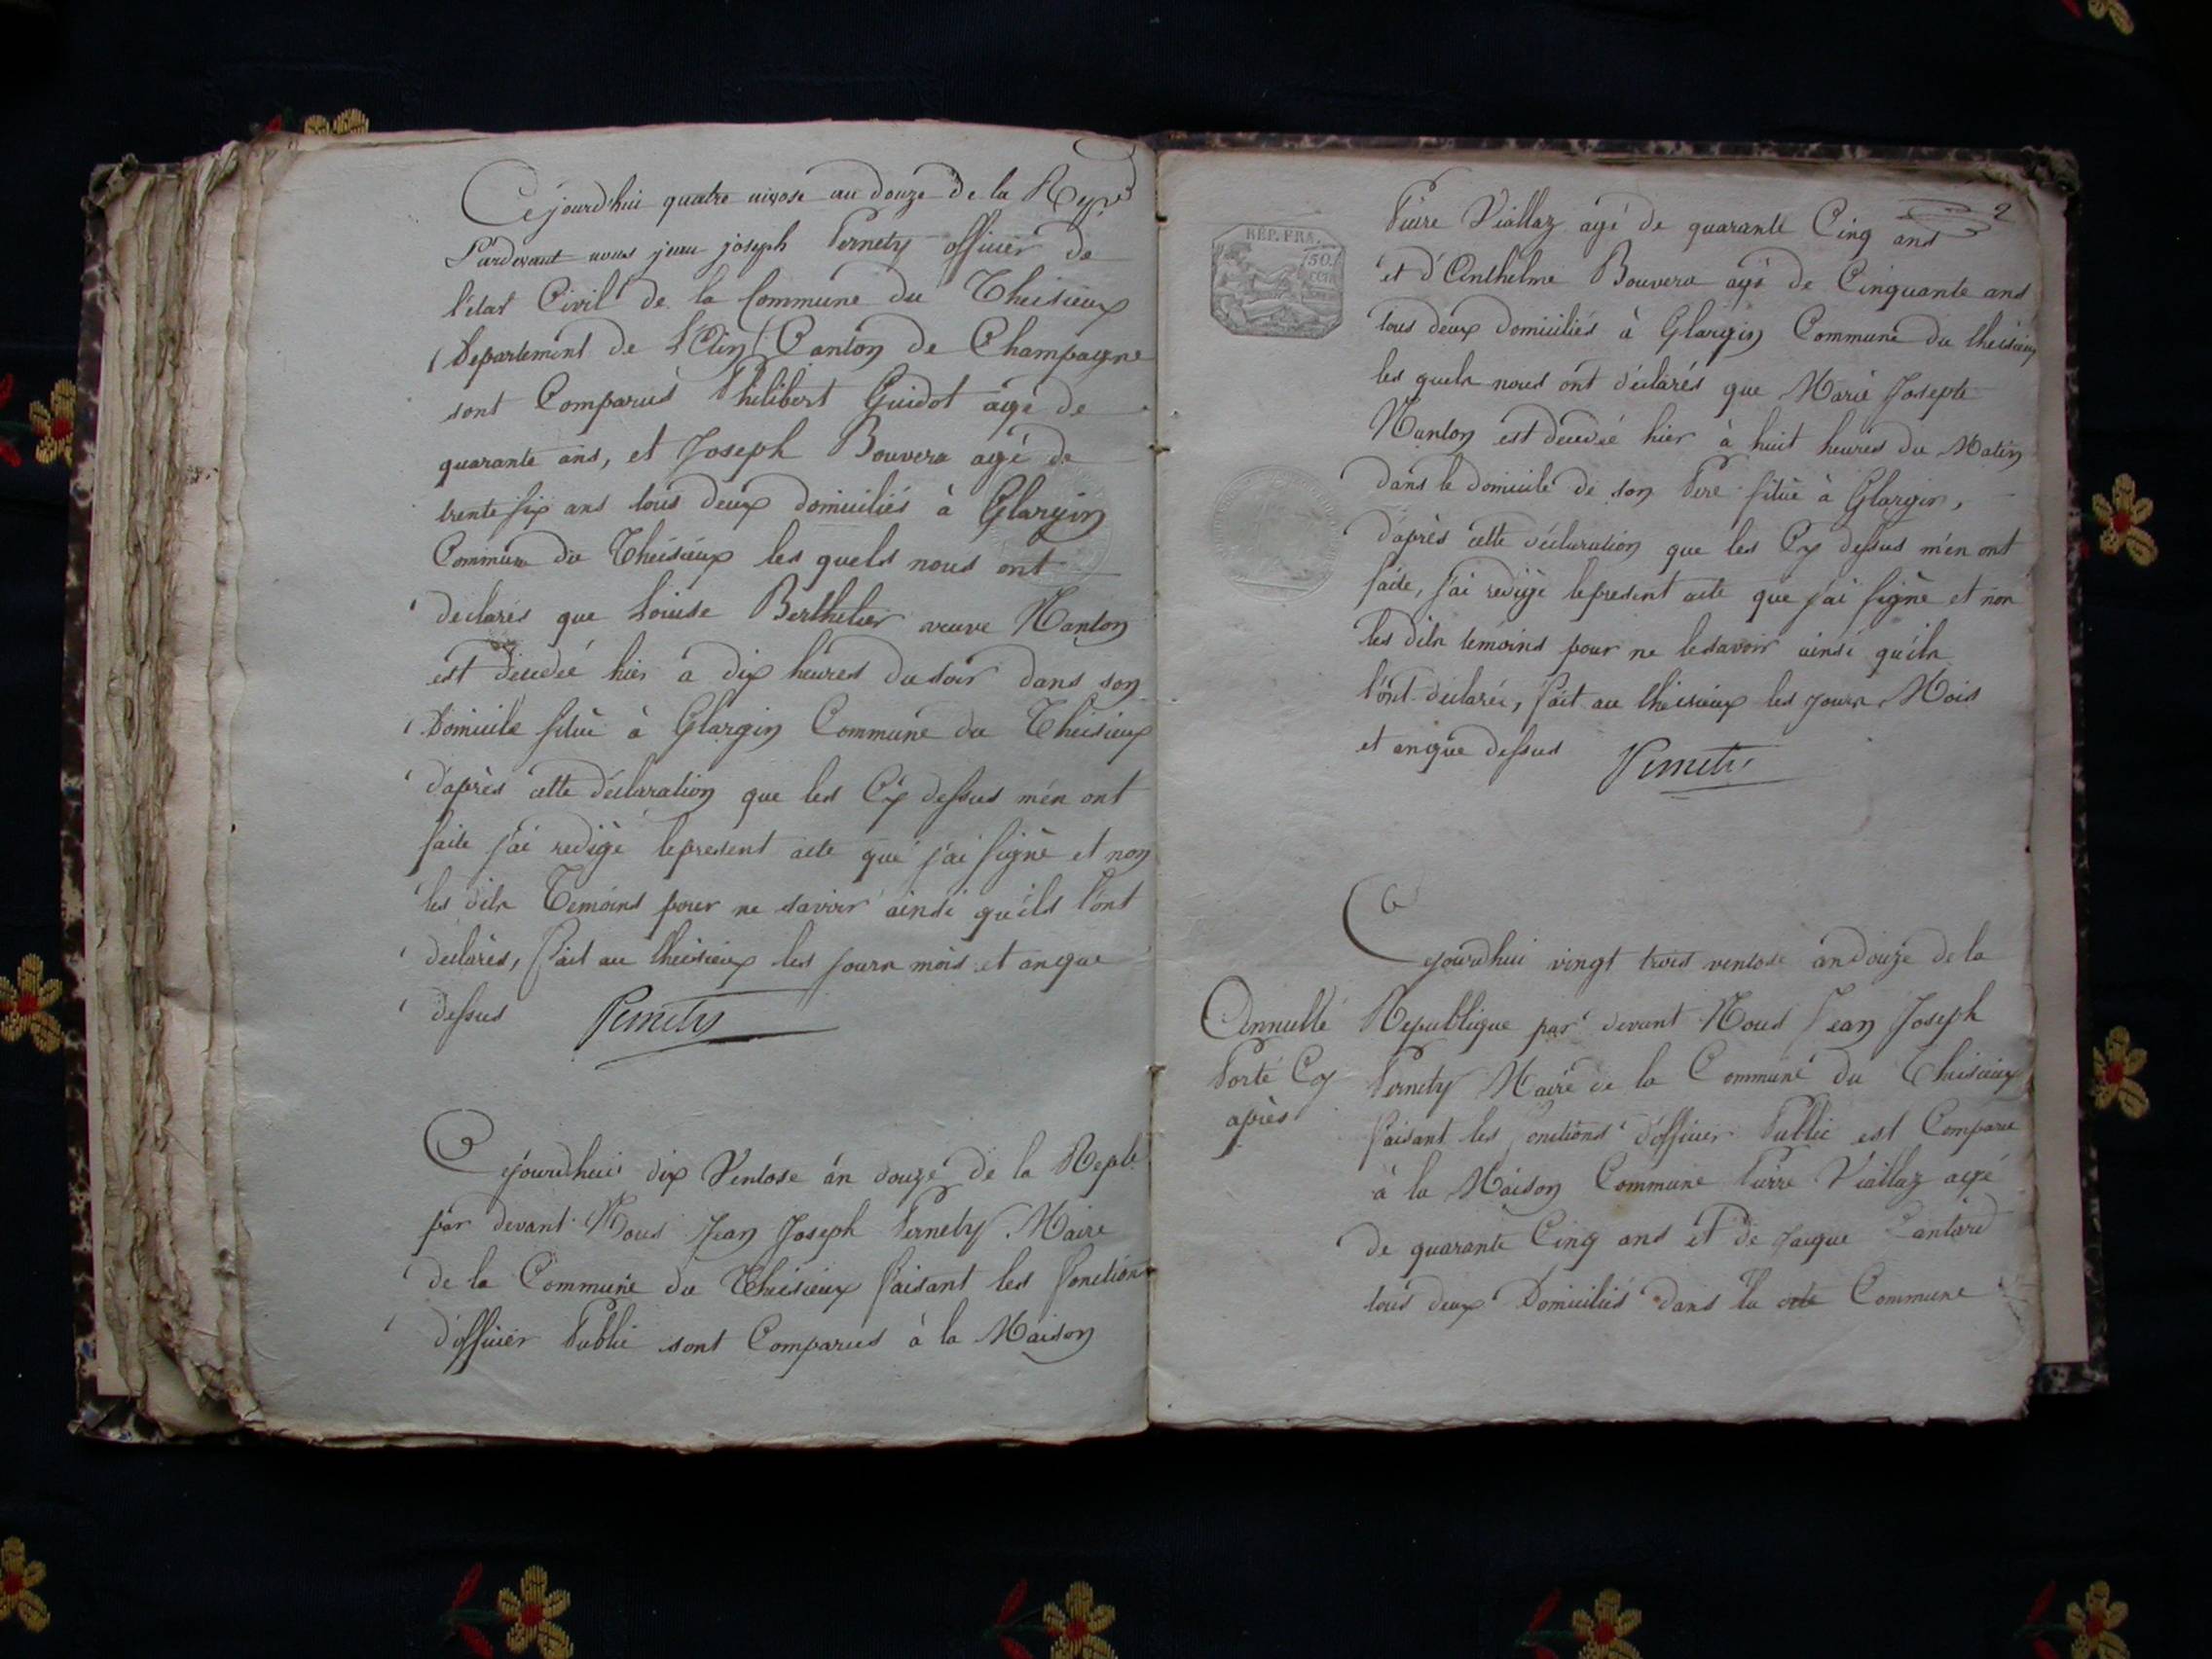 Cejourd'hui quatre nivose an douze de la Rep.
Pardevant nous jean joseph Pernety officier de
l'état Civil de la Commune du Theisieux
Departement de L'Ain Canton de Champagne
sont Comparus Philibert Guidot agé de
quarante ans, et Joseph Bouvera agé de
trente six ans tous deux domiciliés à Glargin
Commune du Theisieux les quels nous ont
declarés que Louise Berthelier veuve Nanton
est decedeé hier a dix heures du soir dans son
Domicile situé à Glargin Commune du Theisieux
d'après cette déclaration que les Cy dessus m'en ont
faite j'ai redigé le present acte que j'ai signé et non
les dits Temoins pour ne savoir ainsi qu'ils l'ont
declarés, fait au theisieux les jours mois et an que
dessus Pernety
Cejourdhui dix Ventose an douze de la Repb.
par devant Nous Jean Joseph Pernety Maire
de la Commune du Theisieux faisant les fonctions
d'officier Public sont Comparus à la Maison
2
RÉP. FRA.
50.
Pierre Viallaz agé de quarante Cinq ans
et d'Anthelme Bouvera agé de Cinquante ans
tous deux domiciliés à Glargin Commune du theisieux
les quels nous ont déclarés que Marie Josepte
Nanton est decedeé hier à huit heures du Matin
dans le domicile de son Pere situé à Glargin,
d'après cette déclaration que les Cy dessus m'en ont
faite, j'ai redigé le present acte que j'ai signé et non
les dits temoins pour ne le savoir ainsi qu'ils
l'ont declaré, fait au theisieux les jours Mois
et an que dessus Pernety
Cejourdhui vingt trois ventose an douze de la
Annullé
Porté Cy
après
Republique par devant Nous Jean Joseph
Pernety Maire de la Commune du Theisieux
faisant les fonctions d'officier Public est Comparu
à la Maison Commune Pierre Viallaz agé
de quarante Cinq ans et de Jacque Cantard
tous deux Domiciliés dans la Commune